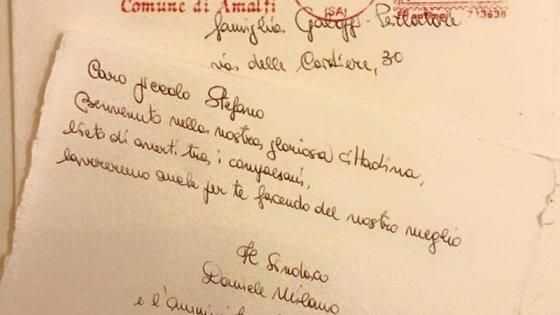 Comune di Amalfi
(SA)
famiglia
via delle Cartiere, 30
Caro piccolo Stefano
Benvenuto nella nostra gloriosa cittadina,
lieti di averti tra i compaesani,
lavoreremo anche per te facendo del nostro meglio
Il Sindaco
Daniele Milano